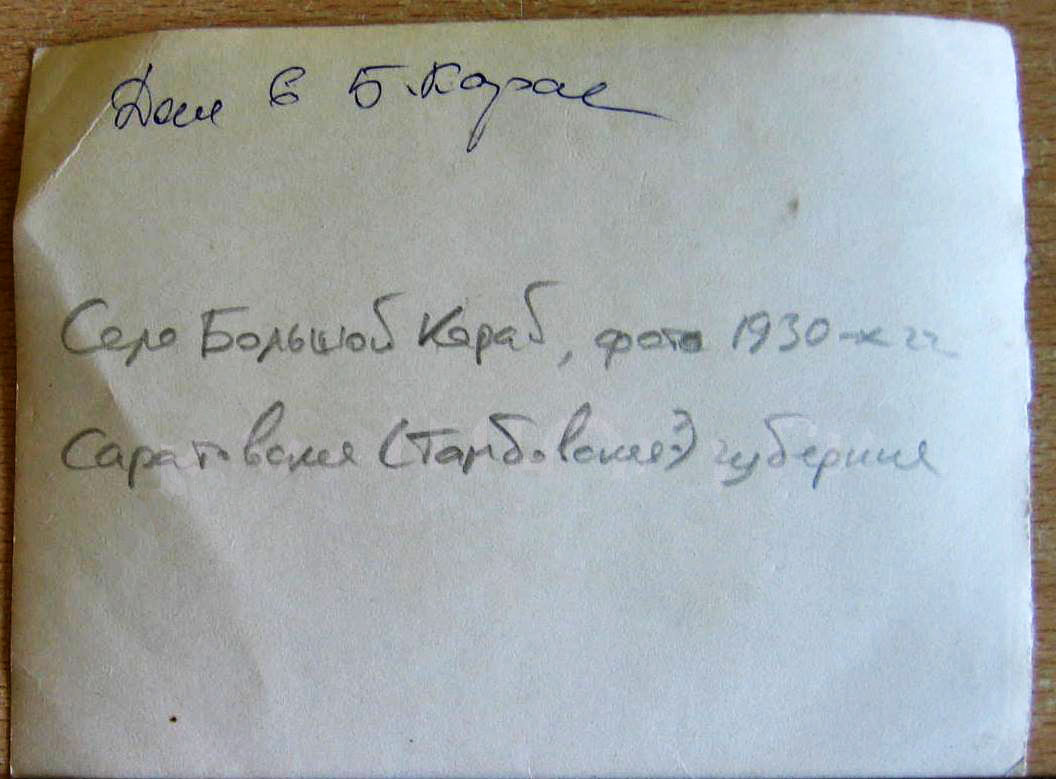 Дом в Б. Карае
Село Большой Караб, фото 1930-х гг.
Саратовская (Тамбовская?) губерния